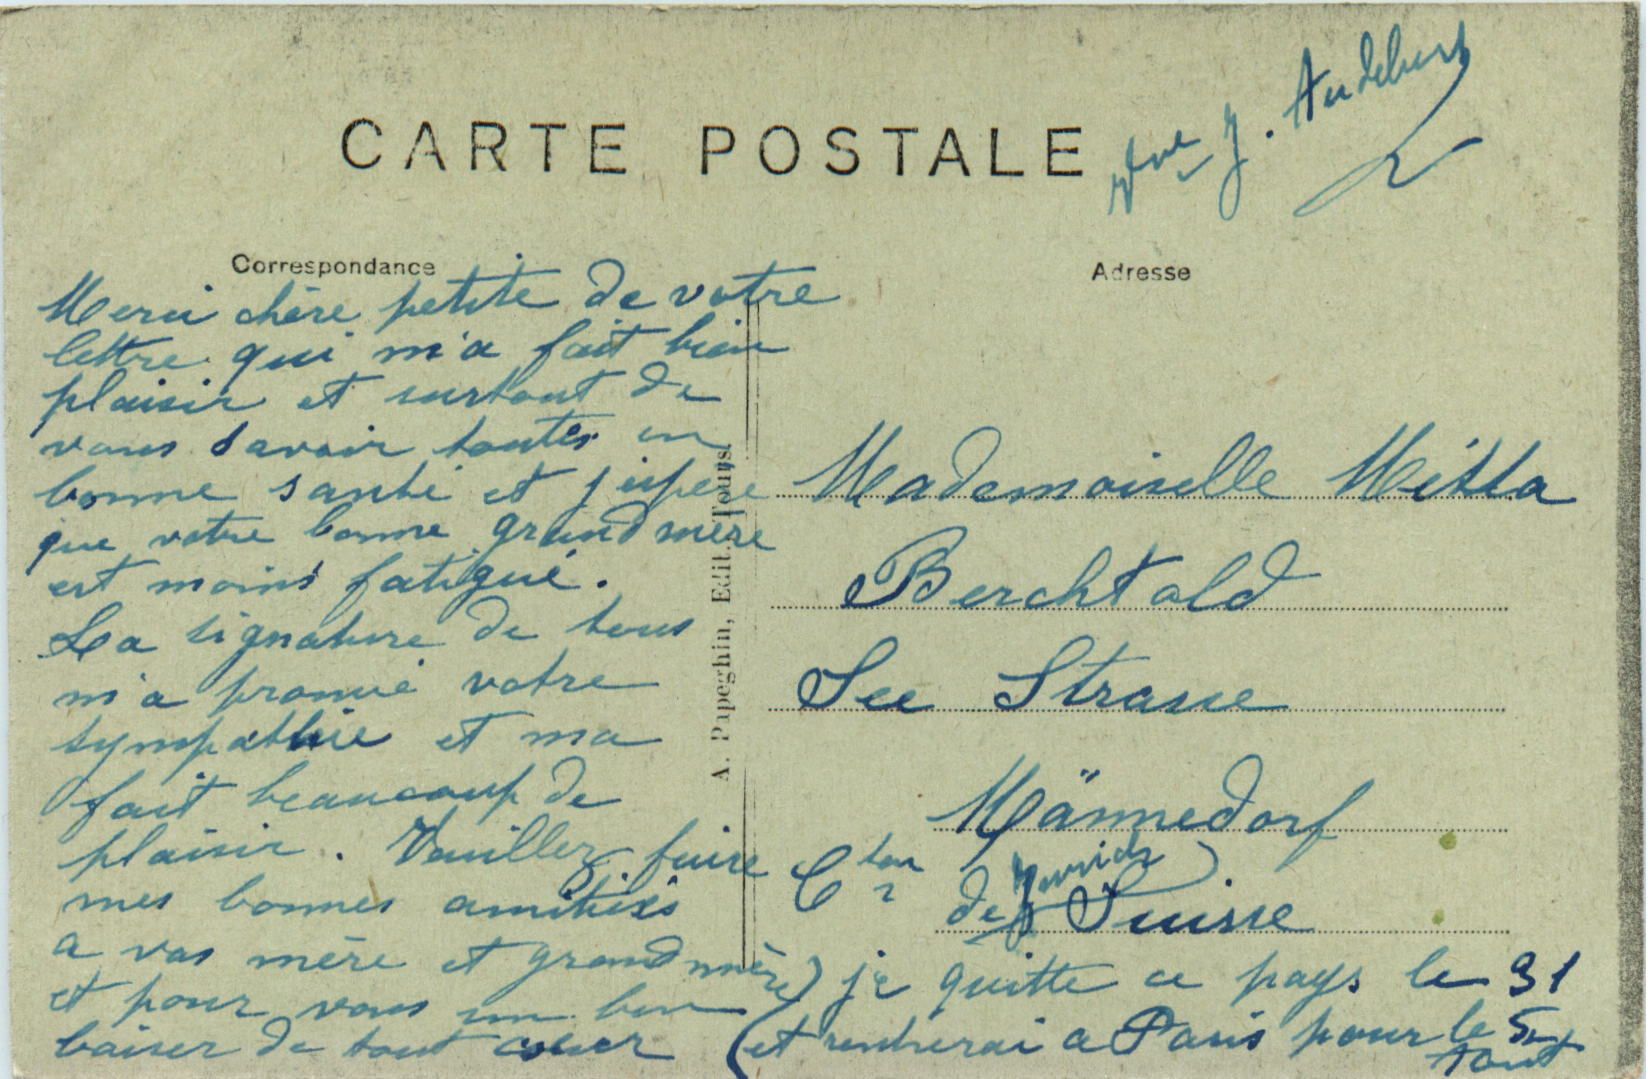 Vve J. Audebert
CARTE POSTALE
Correspondance
Adresse
Merci chère petite de votre
lettre qui m'a fait bien
plaisir et surtout de
vous savoir toutes en
bonne santé et j'espere
que votre bonne grand mère
est moins fatigué.
La signature de tous
m'a prouvé votre
sympathie et ma
fait beaucoup de
plaisir. Veuillez faire
mes bonnes amitiés
a vos mère et grand mère
et pour vous un bon
baiser de tout coeur
A. Papeghin, Edit. Tours
Mademoiselle
Berchtold
See Strasse
Männedorf
Cton de Zurich
Suisse
je quitte ce pays le 31
et rentrerai a Paris pour le 5
Aout